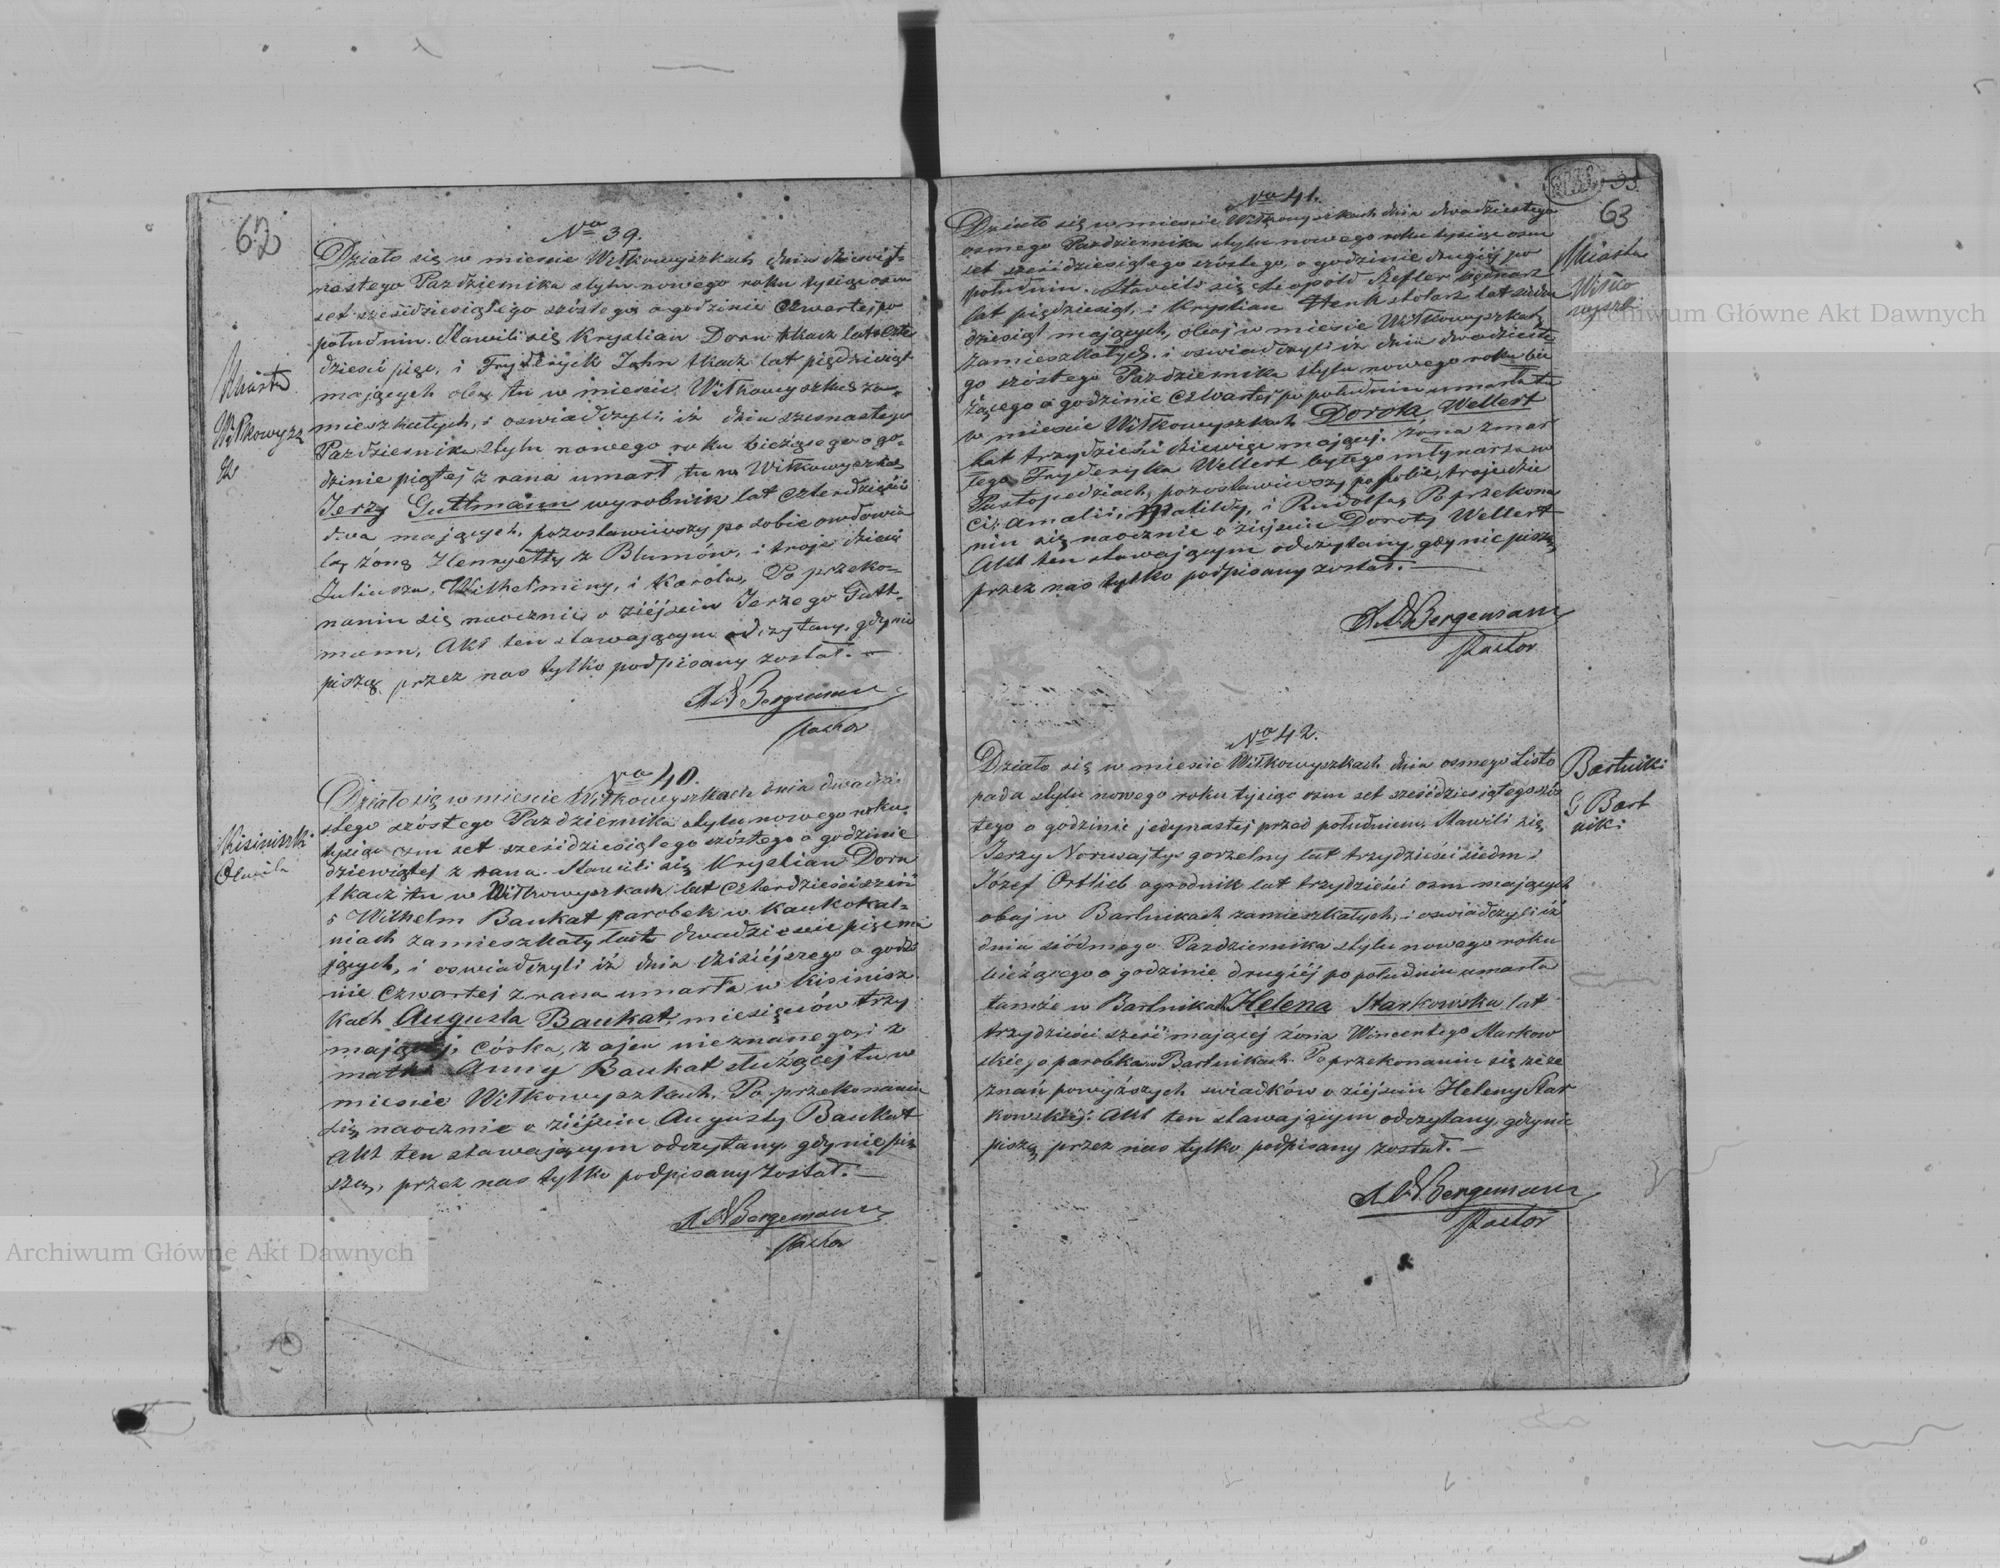 62
Nro 39.
Miasto
Wiłkowyszki
Działo się w mieście Wiłkowyszkach dnia dziewięt-
nastego Pazdziernika stylu nowego roku tysiąc osm
set sześćdziesiątego szóstego o godzinie czwartej po
południu. Stawili się Krystian Dorn tkacz lat czter
dzieści pięć, i Fryderyck Jahn tkacz lat pięćdziesiąt
mających obaj tu w mieście Wiłkowyszkach za-
mieszkałych, i oswiadczyli iż dnia szesnastego
Pazdziernika stylu nowego roku bieżącego o go-
dzinie piątej z rana umarł tu w Wiłkowyszkach
Jerzy Guttmann wyrobnik lat czterdzieści
dwa mających, pozostawiwszy po sobie owdowia
łą żonę Henryettę z Blumów, i troje dzieci
Juliusza, Wilhelminy, i Karola, Po przeko-
naniu się naocznie o zéjściu Jerzego Gutt-
mann, Akt ten stawającym odczytany, gdy nie
piszą przez nas tylko podpisany został.—
Bergemann
Pastor
Nro 40.
Działo się w mieście Wiłkowyszkach dnia dwadzie
stego szóstego Pazdziernika stylu nowego roku
tysiąc osm set sześćdziesiątego szóstego o godzinie
dziewiątej z rana. Stawili się Krystian Dorn
tkacz tu w Wiłkowyszkach lat czterdzieści
i Wilhelm Baukat parobek w Kaukokal-
niach zamieszkały lat dwadzieścia pięć ma
jących, i oswiadczyli iż dnia dzisiéjszego o godzi
nie czwartej z rana umarła w Kisinisz
kach Augusta Baukat, miesięców trzy
mającej, córka, z ojca nieznanego i z
matki Anny Baukat służącej tu w
mieście Wiłkowyszkach, Po przekonaniu
się naocznie o zéjściu Augusty Baukat
Akt ten stawającym odczytany, gdy nie pi
szą, przez nas tylko podpisany został.—
Bergemann
Pastor
63
Nro 41.
Miasto
Wiłko
wyszki
Działo się w mieście Wiłkowyszkach dnia dwudziestego
osmego Pazdziernika stylu nowego roku tysiąc osm
set sześćdziesiątego szóstego, o godzinie drugiéj po
południu. Stawili się Leopold Hefler bednarz
lat pięćdziesiąt, i Krystian Henk stolarz lat siedm
dziesiąt mających, obaj w mieście Wiłkowyszkach
zamieszkałych, i oswiadczyli iż dnia dwadzieste
go szóstego Pazdziernika stylu nowego roku bie
żącego o godzinie czwartej po południu umarła tu
w mieście Wiłkowyszkach Dorota Wellert
lat trzydzieści dziewięć mającej, żona zmar
łego Fryderyka Wellert byłego młynarza w
Pustopedziach, pozostawiwszy po sobie, troje dzie
ci: Amalii, Matildy, i Rudolfa, Po przekona
niu się naocznie o zéjściu Doroty Wellert
Akt ten stawającym odczytany, gdy nie piszą,
przez nas tylko podpisany został.—
Bergemann
Pastor
Nro 42.
Bartniki
G Bart
niki
Działo się w mieście Wiłkowyszkach dnia osmego Listo
pada stylu nowego roku tysiąc osm set sześćdziesiątego szós
tego o godzinie jedynastej przed południem, Stawili się
Jerzy Norwajtys gorzelny lat trzydzieści siedm i
Józef Ortlieb ogrodnik lat trzydzieści osm mających
obaj w Bartnikach zamieszkałych, i oswiadczyli iż
dnia siódmego Pazdziernika stylu nowego roku
bieżącego o godzinie drugiéj po południu umarła
tamże w Bartnikach Helena Starkowska lat
trzydzieści sześć mającej żona Wincentego Starkow
skiego parobka w Bartnikach. Po przekonaniu się ze ze
znań powyższych swiadków o zéjściu Heleny Star
kowskiéj: Akt ten stawającym odczytany, gdy nie
piszą przez nas tylko podpisany został.—
Bergemann
Pastor
Archiwum Główne Akt Dawnych
Archiwum Główne Akt Dawnych